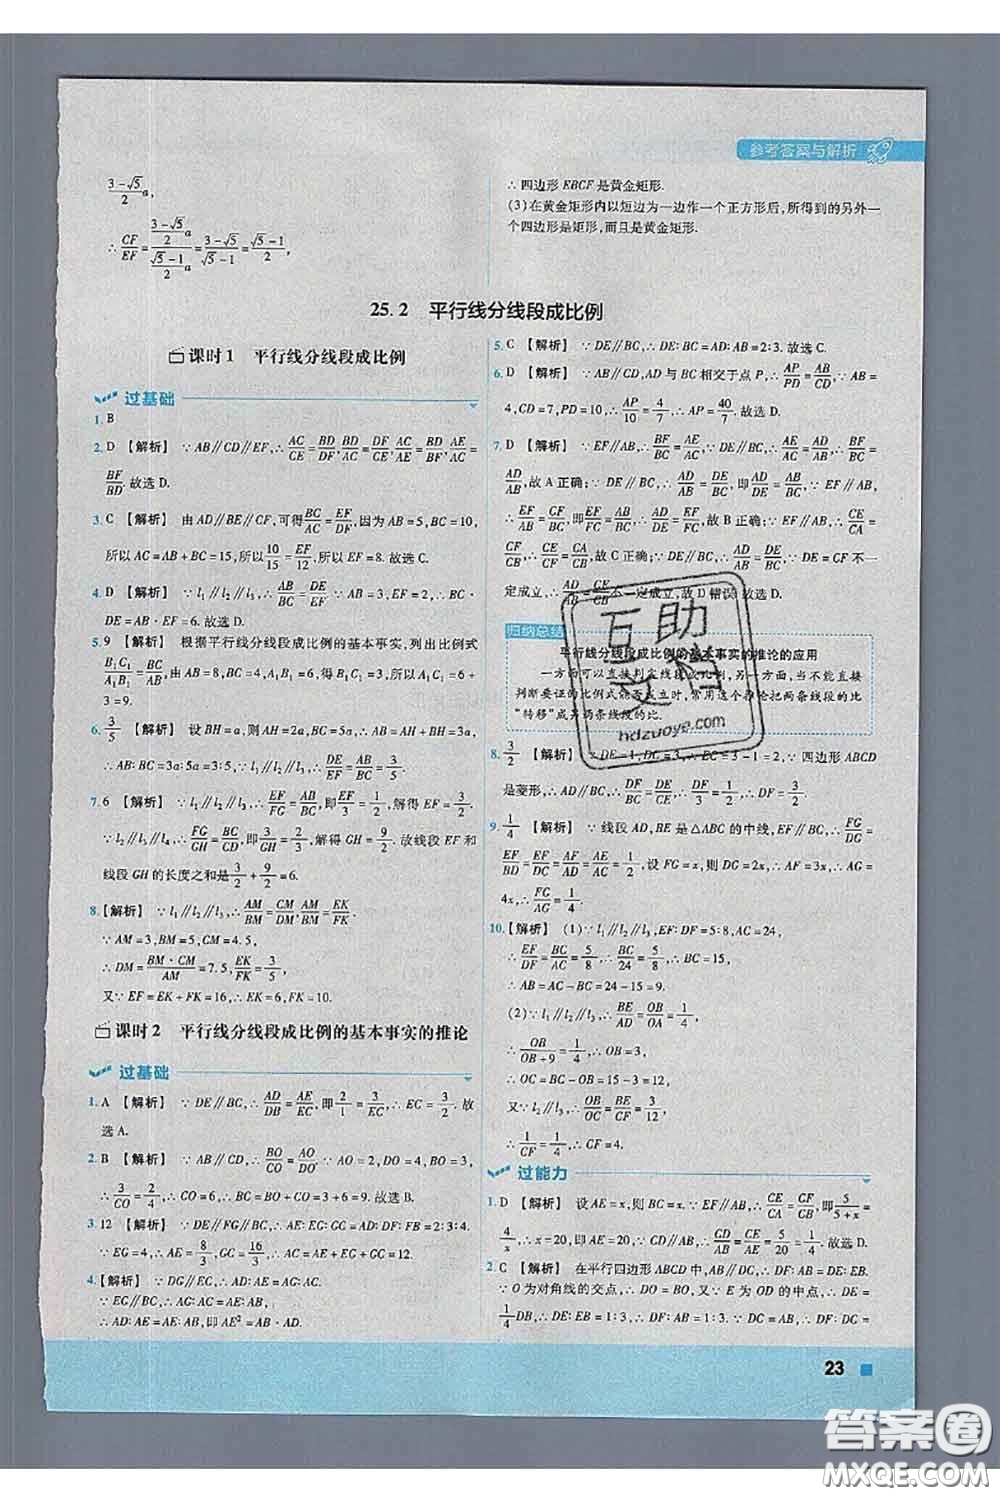 参考答案与解析
(3-√5)/2 a,
∴ CF/EF = ((3-√5)/2 a)/((√5-1)/2 a) = (3-√5)/(√5-1) = (√5-1)/2,
∴ 四边形 EBCF 是黄金矩形.
(3)在黄金矩形内以短边为一边作一个正方形后,所得到的另外一
个四边形是矩形,而且是黄金矩形.
25.2 平行线分线段成比例
课时1 平行线分线段成比例
过基础
1. B
2. D 【解析】 ∵ AB∥CD∥EF,∴ AC/CE = BD/DF, BD/AC = DF/CE, AC/AE = BD/BF, AE/AC =
BF/BD. 故选 D.
3. C 【解析】 由 AD∥BE∥CF,可得 BC/AC = EF/DF,因为 AB=5,BC=10,
所以 AC=AB+BC=15,所以 10/15 = EF/12,所以 EF=8. 故选 C.
4. D 【解析】 ∵ l₁∥l₂∥l₃,∴ AB/BC = DE/EF,∴ AB·EF=BC·
DE,∴ DE=AB·EF=6. 故选 D.
5. 9 【解析】 根据平行线分线段成比例的基本事实,列出比例式
B₁C₁/A₁B₁ = BC/AB,由题意,得 AB=4,A₁B₁=6,得 B₁C₁=3,所以 A₁C₁=6+
3=9.
6. 3/5 【解析】 设 BH=a,则 AH=2a,BC=5a,∴ AB=AH+BH=3a,
∴ AB:BC=3a:5a=3/5. ∵ l₁∥l₂∥l₃,∴ DE/EF = AB/BC = 3/5.
7. 6 【解析】 ∵ l₁∥l₂∥l₃,∴ EF/FG = AB/BC,即 EF/3 = 1/2,解得 EF=3/2.
∵ l₂∥l₃∥l₄,∴ FG/GH = BC/CD,即 3/GH = 2/3,解得 GH=9/2. 故线段 EF 和
线段 GH 的长度之和是 3/2 + 9/2 = 6.
8. 【解析】 ∵ l₁∥l₂∥l₃,∴ AM/BM = CM/DM, AM/BM = EK/FK.
∵ AM=3,BM=5,CM=4.5,
∴ DM = BM·CM/AM = 7.5, EK/FK = 3/5,
又∵ EF=EK+FK=16,∴ EK=6,FK=10.
课时2 平行线分线段成比例的基本事实的推论
过基础
1. A 【解析】 ∵ DE∥BC,∴ AD/DB = AE/EC,即 2/1 = 3/EC,∴ EC=3/2. 故
选 A.
2. B 【解析】 ∵ AB∥CD,∴ BO/CO = AO/DO. ∵ AO=2,DO=4,BO=3,
∴ 3/CO = 2/4,∴ CO=6,∴ BC=BO+CO=3+6=9. 故选 B.
3. 12 【解析】 ∵ DE∥FG∥BC,∴ AE:EG:GC=AD:DF:FB=2:3:4.
∵ EG=4,∴ AE=8/3,GC=16/3,∴ AC=AE+EG+GC=12.
4. 【解析】 ∵ DG∥EC,∴ AD:AE=AG:AC.
∵ EG∥BC,∴ AE:AB=AG:AC,
∴ AD:AE=AE:AB,即 AE²=AB·AD.
5. C 【解析】 ∵ DE∥BC,∴ DE:BC=AD:AB=2:3. 故选 C.
6. D 【解析】 ∵ AB∥CD,AD 与 BC 相交于点 P,∴ AP/PD = AB/CD. ∵ AB=
4,CD=7,PD=10,∴ AP/10 = 4/7,∴ AP=40/7. 故选 D.
7. D 【解析】 ∵ EF∥AB,∴ BF/BC = AE/AC. ∵ DE∥BC,∴ AE/AC = AD/AB,∴ BF/BC =
AD/AB,故 A 正确;∵ DE∥BC,∴ AD/DE = AB/BC,即 AB/AD = BC/DE,∵ EF∥AB,
∴ EF/AB = CF/BC,即 EF/FC = AB/BC,∴ AD/DE = EF/FC,故 B 正确;∵ EF∥AB,∴ CE/CA =
CF/CB,∴ CE/CF = CA/CB,故 C 正确;∵ DE∥BC,∴ AD/AB = DE/BC = CF/BC 不一
定成立,∴ AD/AB = CE/CB 不一定成立,故 D 错误. 故选 D.
归纳总结
平行线分线段成比例的基本事实的推论的应用
一方面可以直接判定线段成比例,另一方面,当不能直接
判断要证的比例式能否成立时,常用这个推论把两条线段的比
“转移”成另两条线段的比.
8. 3/2 【解析】 ∵ DE=1,DC=3,∴ EC=3-1=2,∵ 四边形 ABCD
是菱形,∴ AD∥BC,∴ DF/BC = DE/CE,∴ DF/3 = 1/2,∴ DF=3/2.
9. 1/4 【解析】 ∵ 线段 AD,BE 是△ABC 的中线,EF∥BC,∴ FG/DG =
EF/BD = EF/DC = AF/AD = AE/AC = 1/2,设 FG=x,则 DG=2x,∴ AF=3x,∴ AG=
4x,∴ FG/AG = 1/4.
10. 【解析】 (1)∵ l₁∥l₂∥l₃,EF:DF=5:8,AC=24,
∴ EF/DF = BC/AC = 5/8,∴ BC/24 = 5/8,∴ BC=15,
∴ AB=AC-BC=24-15=9.
(2)∵ l₁∥l₂∥l₃,∴ BE/AD = OB/OA = 1/4,
∴ OB/(OB+9) = 1/4,∴ OB=3,
∴ OC=BC-OB=15-3=12,
又∵ l₂∥l₃,∴ OB/OC = BE/CF = 3/12,
∴ 1/CF = 1/4,∴ CF=4.
过能力
1. D 【解析】 设 AE=x,则 BC=x. ∵ EF∥AB,∴ CE/CA = CF/CB,即 5/(5+x) =
4/x,∴ x=20,∴ AE=20,∵ EF∥DB,∴ GD/AB = CE/AE = 5/20 = 1/4. 故选 D.
2. C 【解析】 在平行四边形 ABCD 中,AB∥DC,∴ DF:AB=DE:EB.
∵ O 为对角线的交点,∴ DO=BO. 又∵ E 为 OD 的中点,∴ DE=
1/4 DB,∴ DE:EB=1:3,∴ DF:AB=1:3. ∵ DC=AB,∴ DF:DC=
23
互助文档
hdzuoye.com
答案圈
MXQE.COM